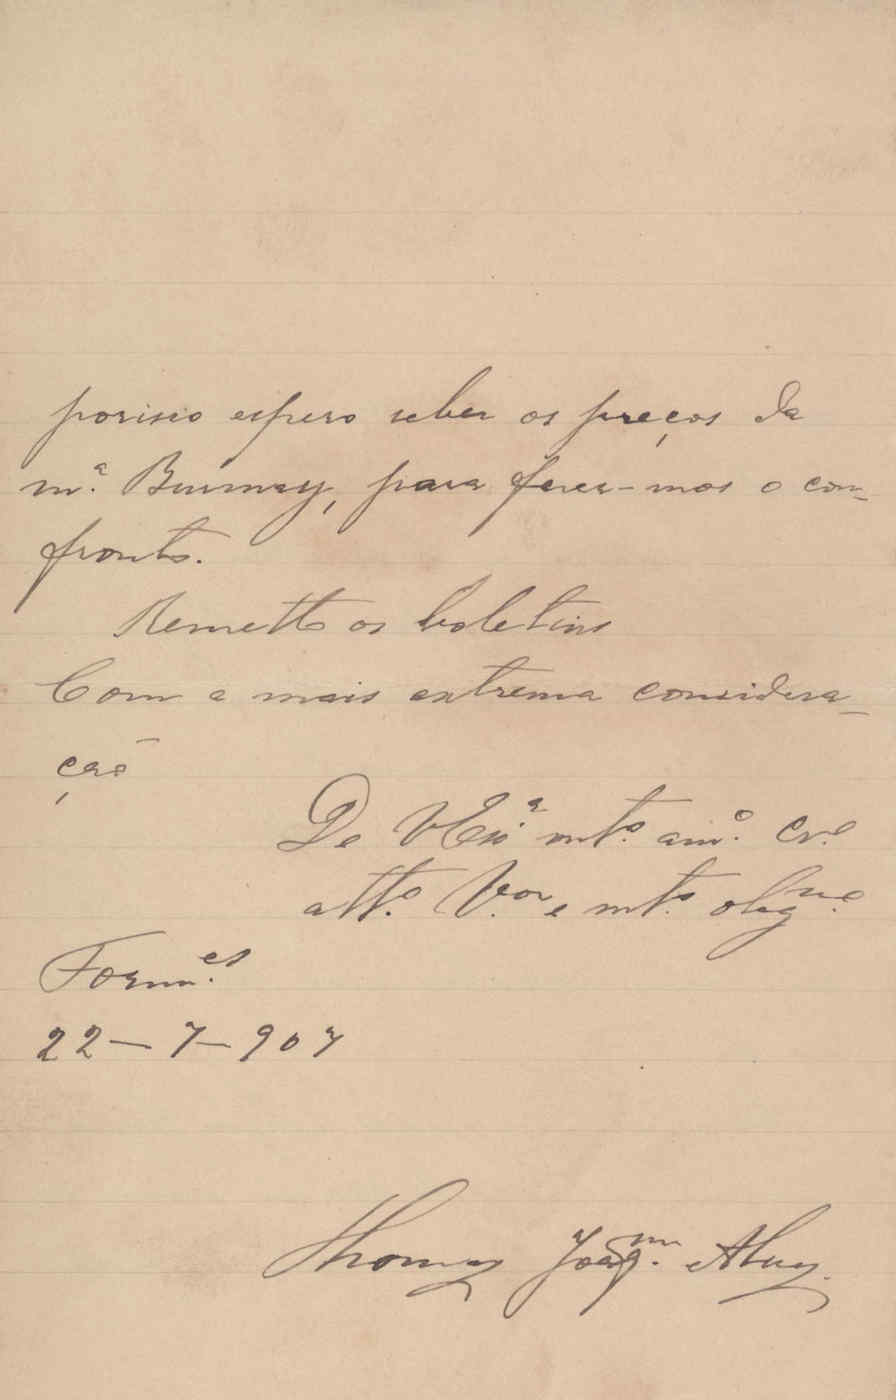 porisso espero saber os preços da
m.ª Burnay, para fazer-mos o con-
fronto.
Remetto os boletins
Com a mais extrema considera-
ção
De V Exª mt.º am.º Cr.º
att.º V.or e mt.º obg.
Forn.es
22-7-907
Thomaz Joaq.m Alves